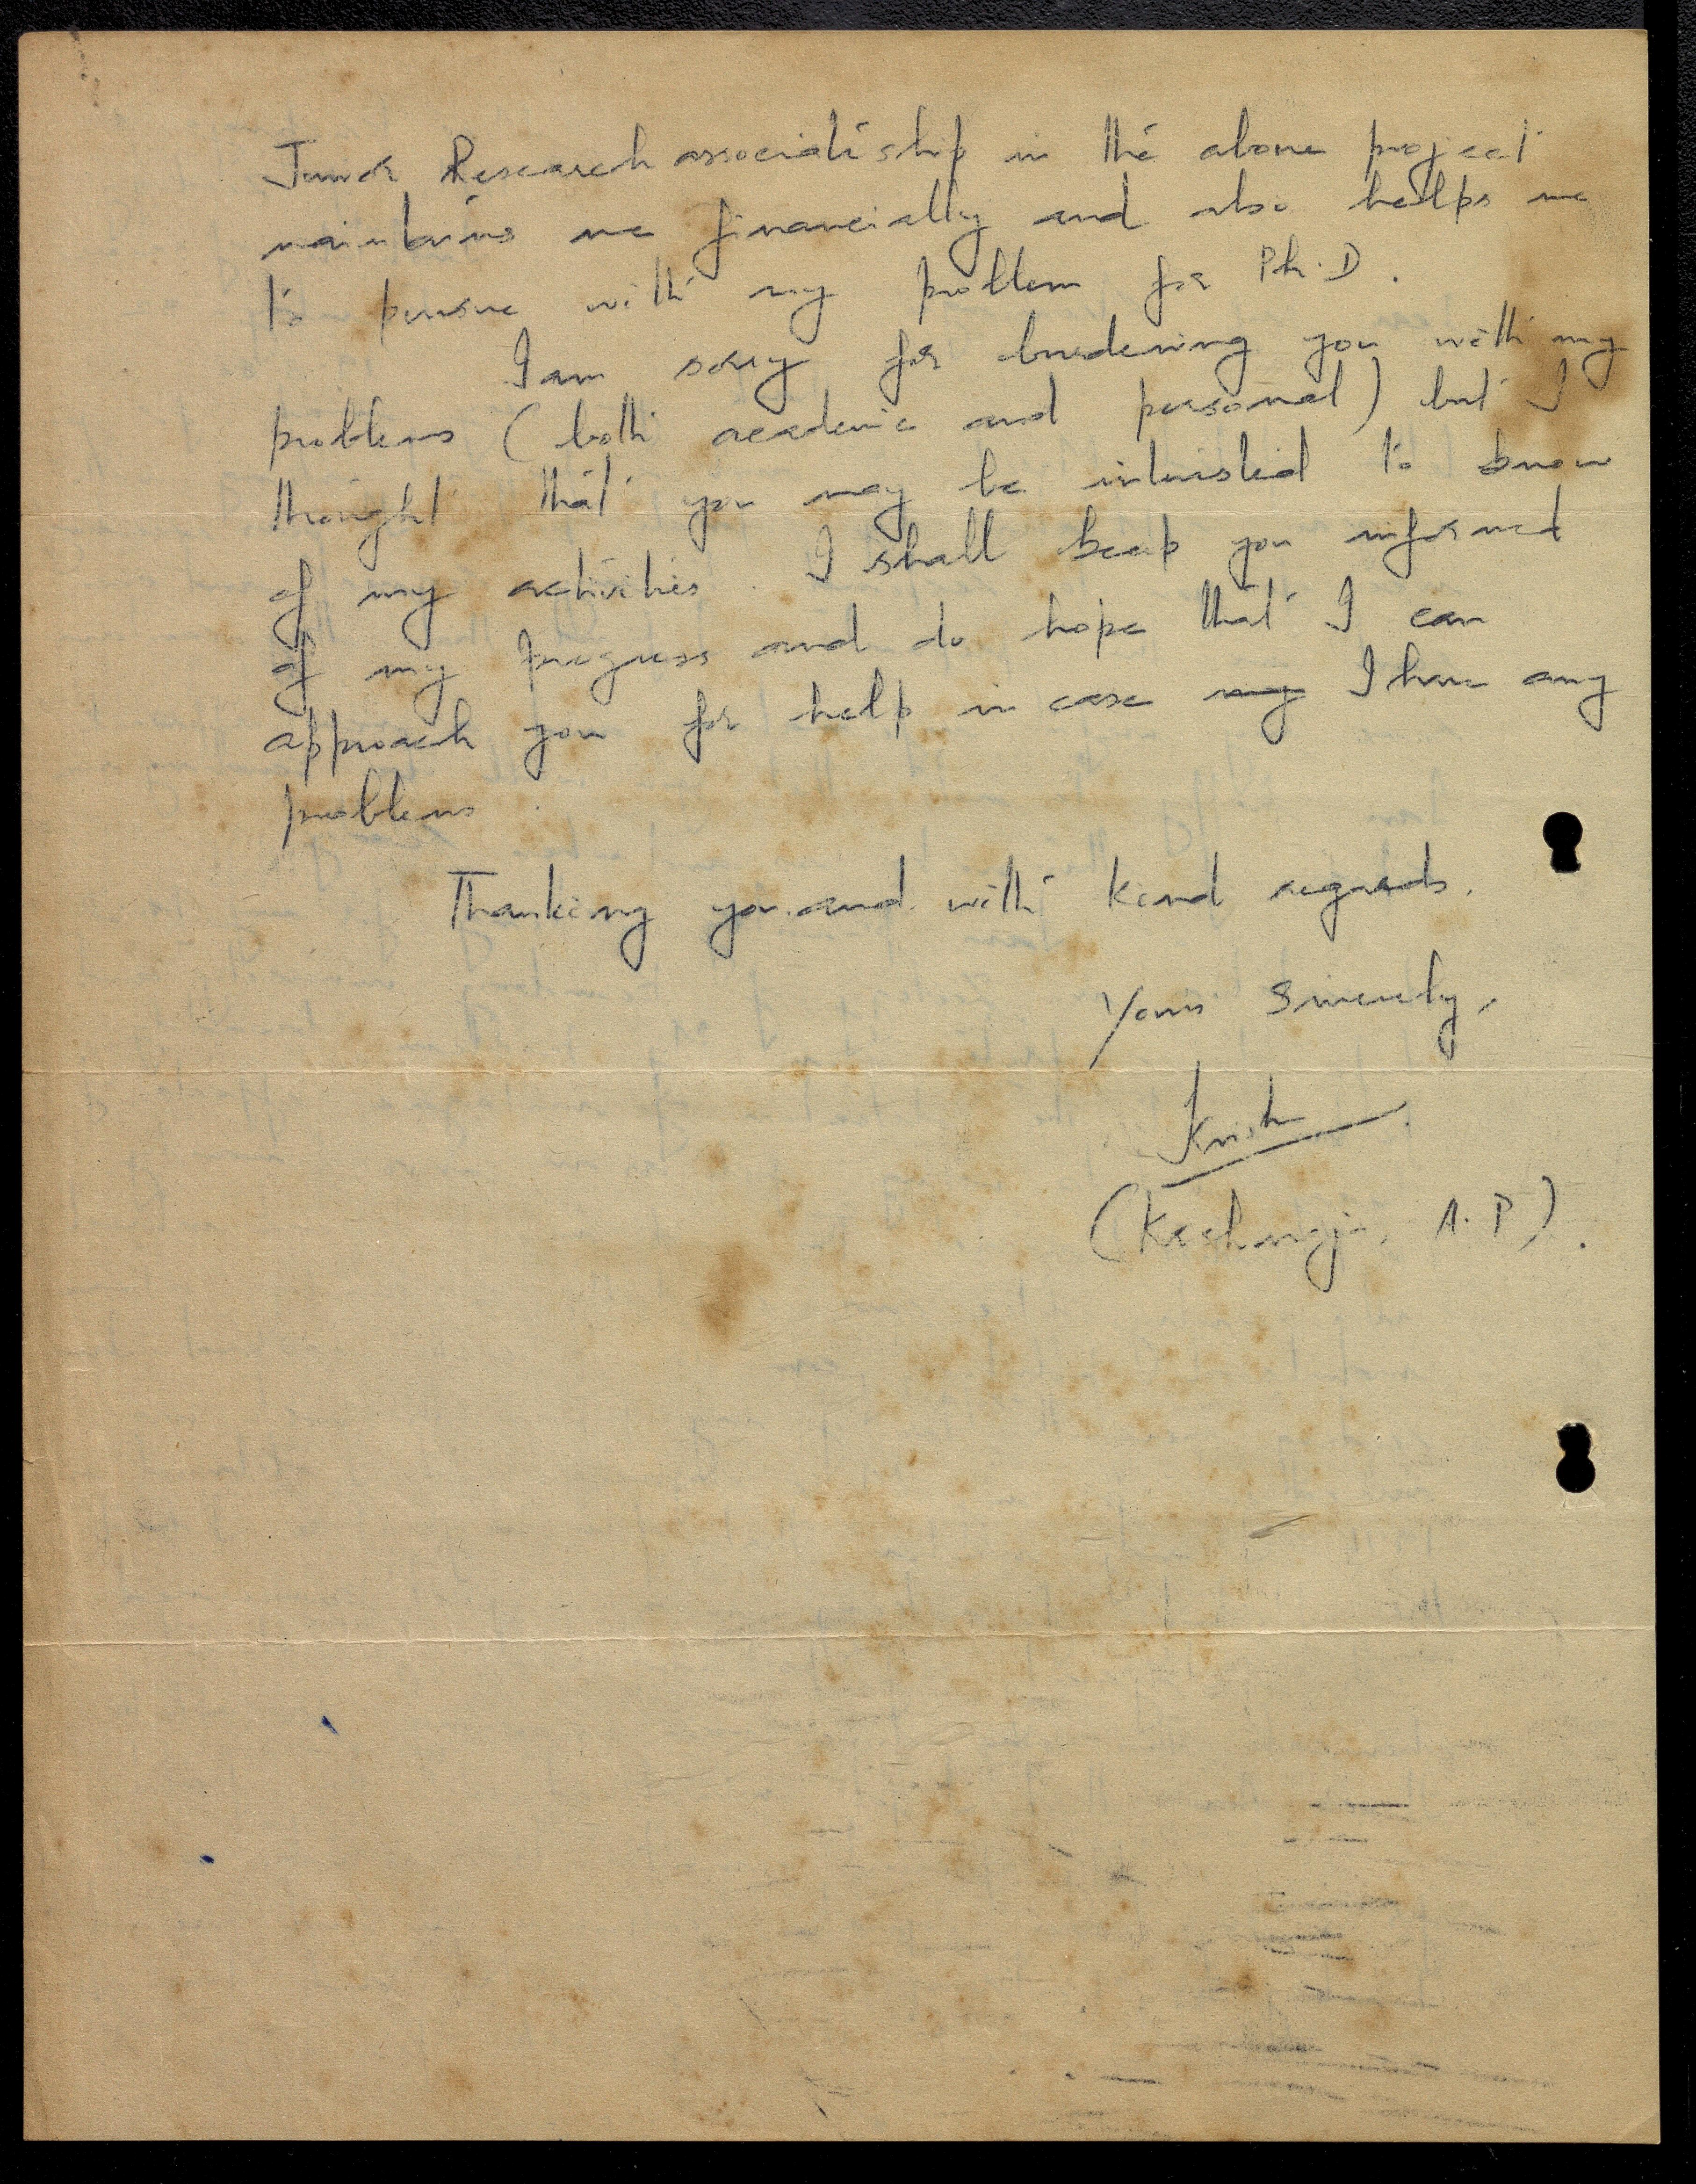 Junior Research associateship in the above project
maintains me financially and also helps me
to pursue with my problem for Ph.D.
I am sorry for burdening you with my
problems (both academic and personal) but I
thought that you may be interested to know
of my activities. I shall keep you informed
of my progress and do hope that I can
approach you for help in case my I have any
problems.
Thanking you and with kind regards.
Yours Sincerely,
Krish
A.P).